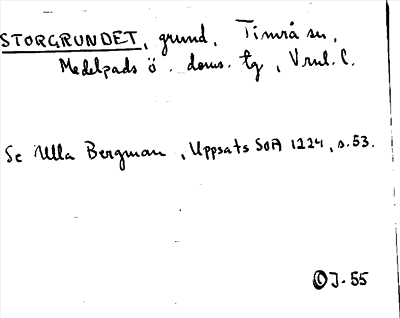 STORGRUNDET, grund, Timrå sn,
Medelpads ö. doms. tg, Vnl. C.
Se Ulla Bergman, Uppsats SOA 1224, s. 53.
OJ-55